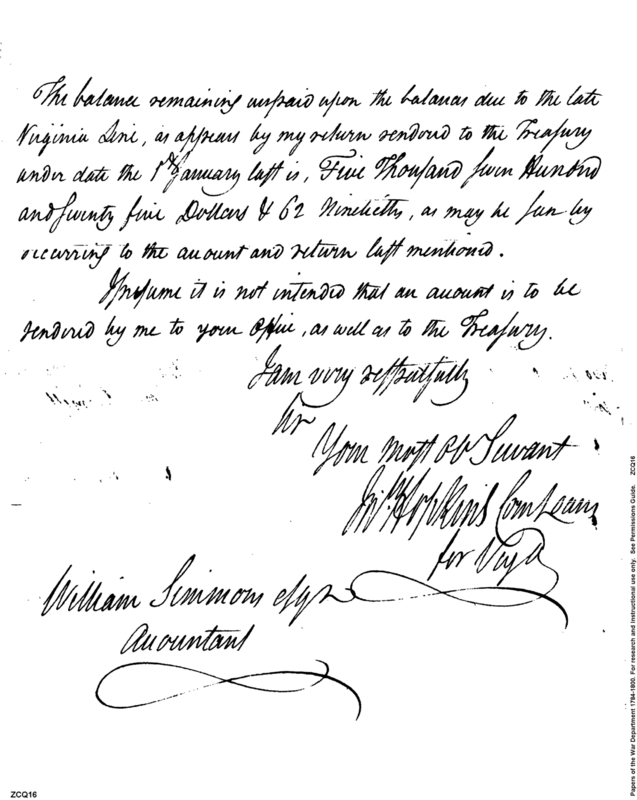 The balance remaining unpaid upon the balances due to the late
Virginia Line, as appears by my return rendered to the Treasury
under date the 1st January last is, Five Thousand seven Hundred
and seventy five Dollars & 62 Ninetieths, as may be seen by
occurring to the account and return last mentioned.
I presume it is not intended that an account is to be
rendered by me to your Office, as well as to the Treasury.
I am very respectfully
Sir
Your most Ob Servant
Jno. Hopkins Com Loans
for Virga
William Simmons esqr
Accountant
ZCQ16
Papers of the War Department 1784-1800. For research and instructional use only. See Permissions Guide. ZCQ16